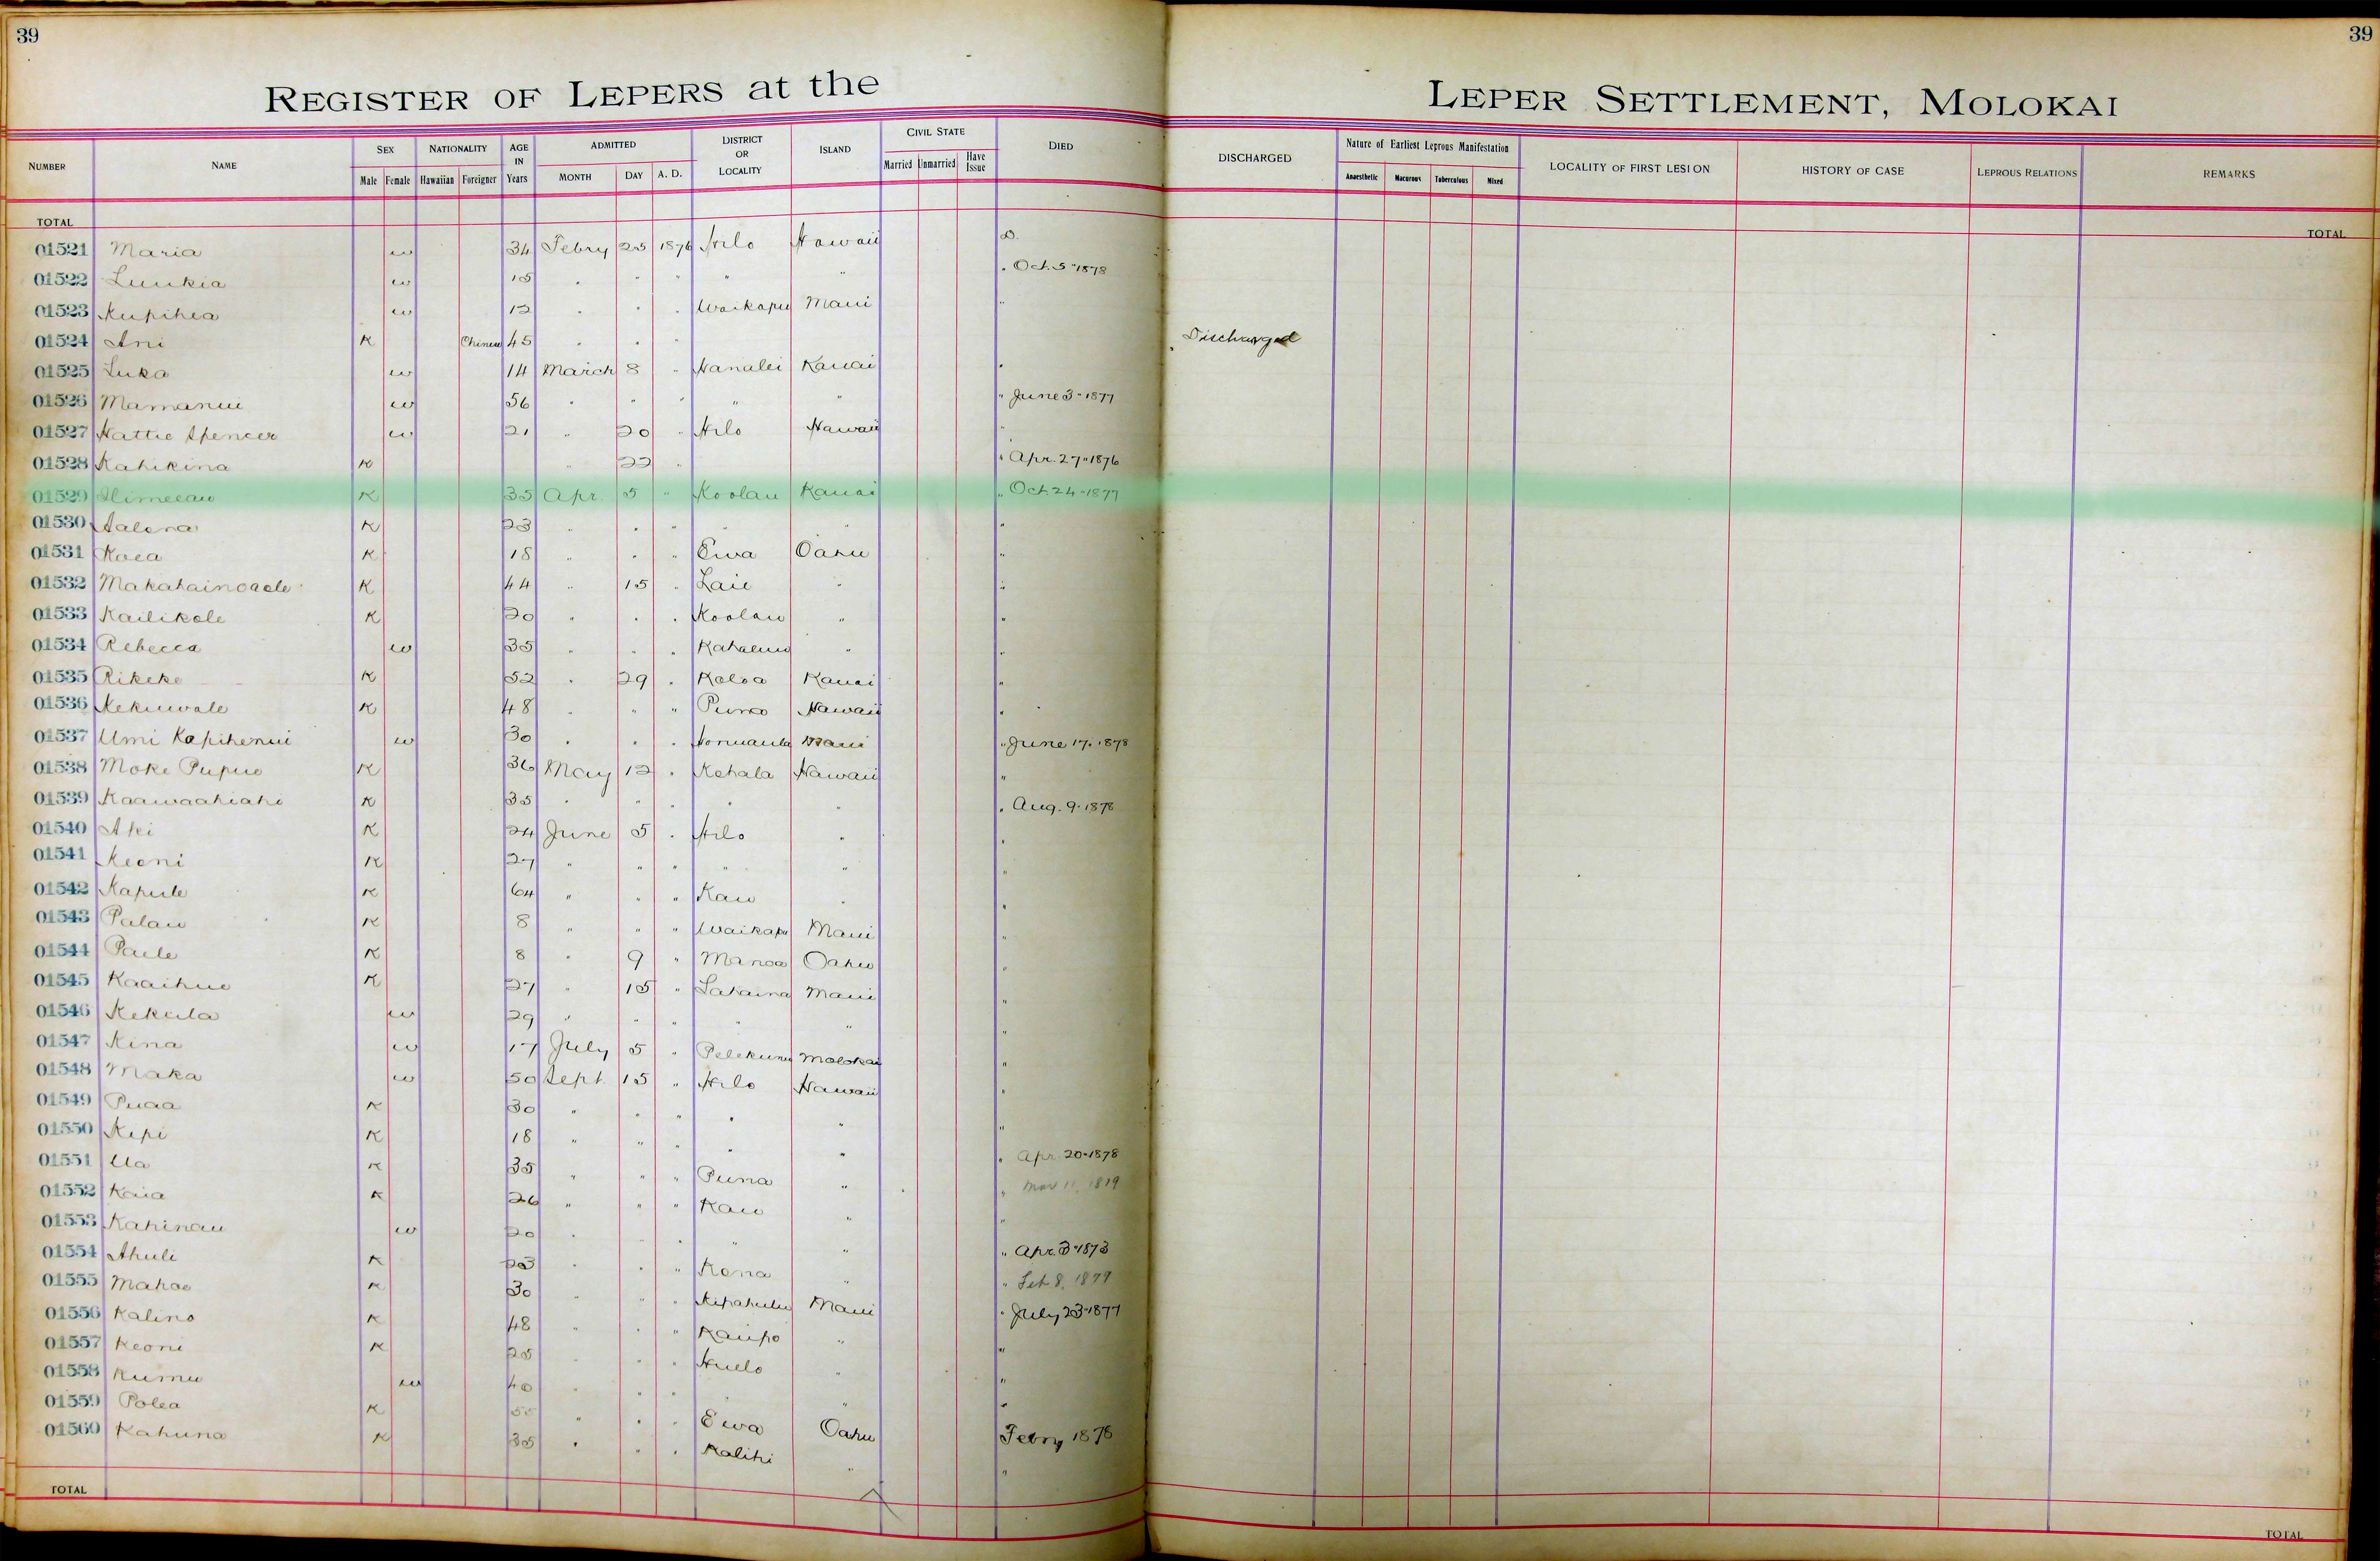 39
39
REGISTER OF LEPERS at the
LEPER SETTLEMENT, MOLOKAI
NUMBER NAME SEX Male Female NATIONALITY Hawaiian Foreigner AGE IN Years ADMITTED MONTH DAY A. D. DISTRICT OR LOCALITY ISLAND CIVIL STATE Married Unmarried Have Issue DIED DISCHARGED Nature of Earliest Leprous Manifestation Anaesthetic Macurous Tuberculous Mixed LOCALITY OF FIRST LESION HISTORY OF CASE LEPROUS RELATIONS REMARKS
TOTAL TOTAL
01521 Maria w 34 Febry 25 1876 Hilo Hawaii D.
01522 Luukia w 15 " " " " " " Oct. 5 - 1878
01523 Kupihea w 12 " " " Waikapu Maui "
01524 Ani K Chinese 45 " " " Discharged
01525 Luka w 14 March 8 " Hanalei Kauai "
01526 Mamanui w 56 " " " " " " June 3 - 1877
01527 Hattie Spencer w 21 " 20 " Hilo Hawaii "
01528 Kahikina K " 22 " " Apr. 27 - 1876
01529 K 35 Apr. 5 " Koolau Kauai " Oct. 24 - 1877
01530 Aalona K 23 " " " " " "
01531 Koea K 18 " " " Ewa Oahu "
01532 Makahainoaole K 44 " 15 " Laie " "
01533 Kailikole K 20 " " " Koolau " "
01534 Rebecca w 35 " " " Kahaluu " "
01535 Rikeke K 52 " 29 " Koloa Kauai "
01536 Kekuwale K 48 " " " Puna Hawaii "
01537 Umi Kapihenui w 30 " " " Honuaula Maui " June 17 - 1878
01538 Moke Pupuo K 36 May 12 " Kohala Hawaii "
01539 Kaawaahiahi K 35 " " " " " " Aug. 9 - 1878
01540 Aki K 24 June 5 " Hilo " "
01541 Keoni K 27 " " " " " "
01542 Kapule K 64 " " " Kau " "
01543 Palau K 8 " " " Waikapu Maui "
01544 Paule K 8 " 9 " Manoa Oahu "
01545 Kaaihue K 27 " 15 " Lahaina Maui "
01546 Kekula w 29 " " " " " "
01547 Kina w 17 July 5 " Pelekunu Molokai "
01548 Maka w 50 Sept. 15 " Hilo Hawaii "
01549 Puaa K 30 " " " " " "
01550 Kipi K 18 " " " " " "
01551 Ua K 35 " " " Puna " " Apr. 20 - 1878
01552 Kaia K 26 " " " Kau " " Mar 11, 1879
01553 Kahinau w 20 " " " " " "
01554 Ahuli K 23 " " " Kona " " Apr. 3 - 1873
01555 Mahoe K 30 " " " Kipahulu Maui " Feb 8, 1879
01556 Kalino K 48 " " " Kaupo " " July 23 - 1877
01557 Keoni K 25 " " " Huelo " "
01558 Kumu w 40 " " " " "
01559 Polea K 55 " " " Ewa Oahu "
01560 Kahuna K 35 " " " Kalihi " Febry 1878
TOTAL TOTAL